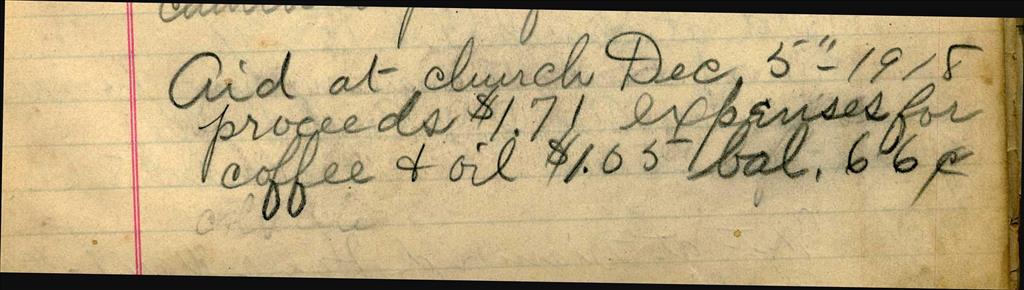 Aid at church Dec. 5" - 1918
proceeds $1.71 expenses for
coffee & oil $1.05 bal. 66¢